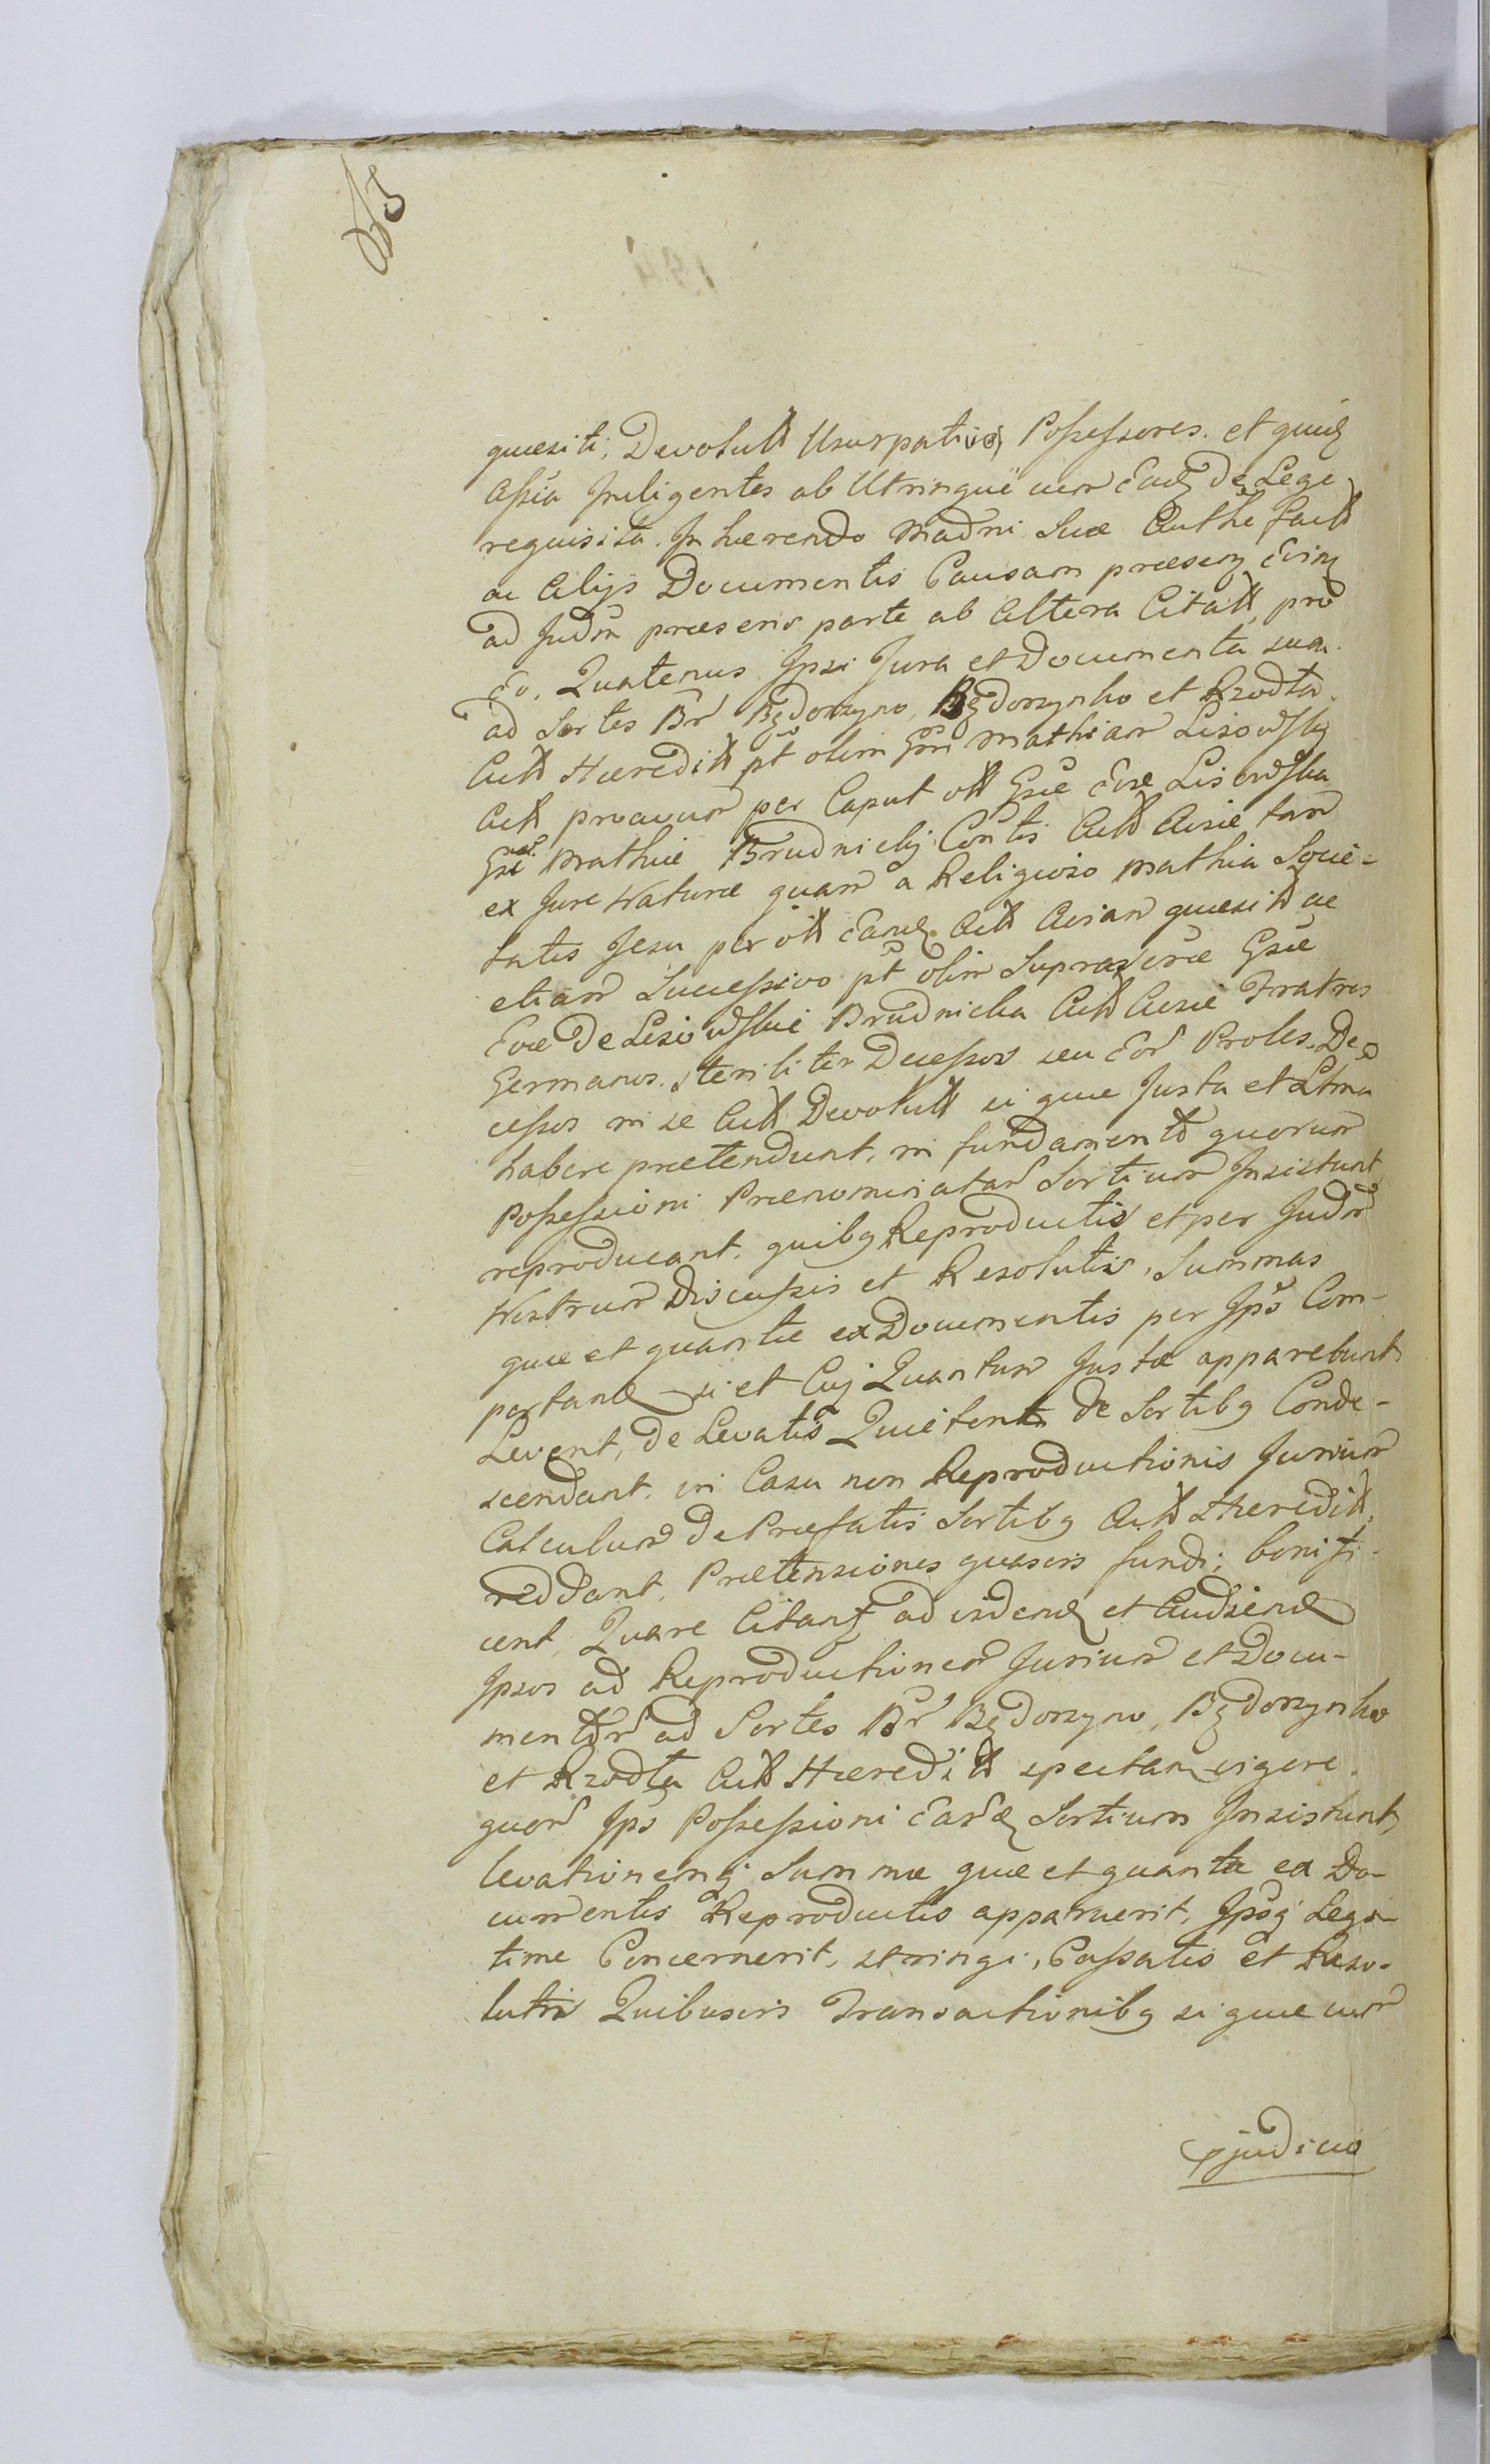 quæsiti, Devolutt Usurpativi Possessores. et quid
Assia Inligentes ab Utrinque cum Ead De Lege
requisita. Inhærendo Madni Suæ Authe fact
ac Alijs Documentis Causam præsen
ad Judm præsens parte ab Altera Citatt, pro
Eo, Quatenus Ipsi Jura et Documenta sua
ad Sortes Br Będorzyno, Będorzynko et Rzodta
Actt Hæreditt pt olim Gsi Mathiam Lisowsky
Actt proavum per Caput ott Gsæ Evæ Lisowska
Gsi Mathiæ Brudnicky Contis Actt Aviæ tam
ex Jure Naturæ quam a Religioso Mathia Socie-
tatis Jesu per ott Eand Actt Avian quæsitt ac
etiam Successivo pt olim Suprascræ Gsæ
Evæ De Lisowskie Brudnicka Actt Aviæ Fratres
Germanos. Steriliter Decessos seu Eor Proles. De-
cessos in se Actt Devolutt si quæ Justa et Ltma
habere prætendunt, in fundamento quorum
Possessioni Prænominatar Sortium Insistunt
reproducant. quibg Reproductis et per Judm
Nostrum Discussis et Resolutis, Summas
quæ et quantæ ex Documentis per Ipso Com-
portand si et Cuj Quantum Justæ apparebunt
Levent, de Levatis Quietent de Sortibg Conde-
scendant. in Casu non Reproductionis Jurium
Calculum de Præfatis Sortibg Actt Hæreditt,
reddant, Prætensiones quasvis fundi, bonifi-
cent Quare Citant ad vidend et Audiend
Ipsos ad Reproductionem Jurium et Docu-
mentor ad Sortes Br Będorzyno, Będorzynko
et Rzodta Actt Hæreditt spectan vigore
quor Ips Possessioni Eard Sortium Insistunt,
levationemq Summæ quæ et quanta ex Do-
cumentis Reproductis apparuerit, Ipsoq Legi-
time Concernerit, stringi, Cassatis et Reso-
lutis Quibusvis Transactionibg si quæ cum
pjudicio